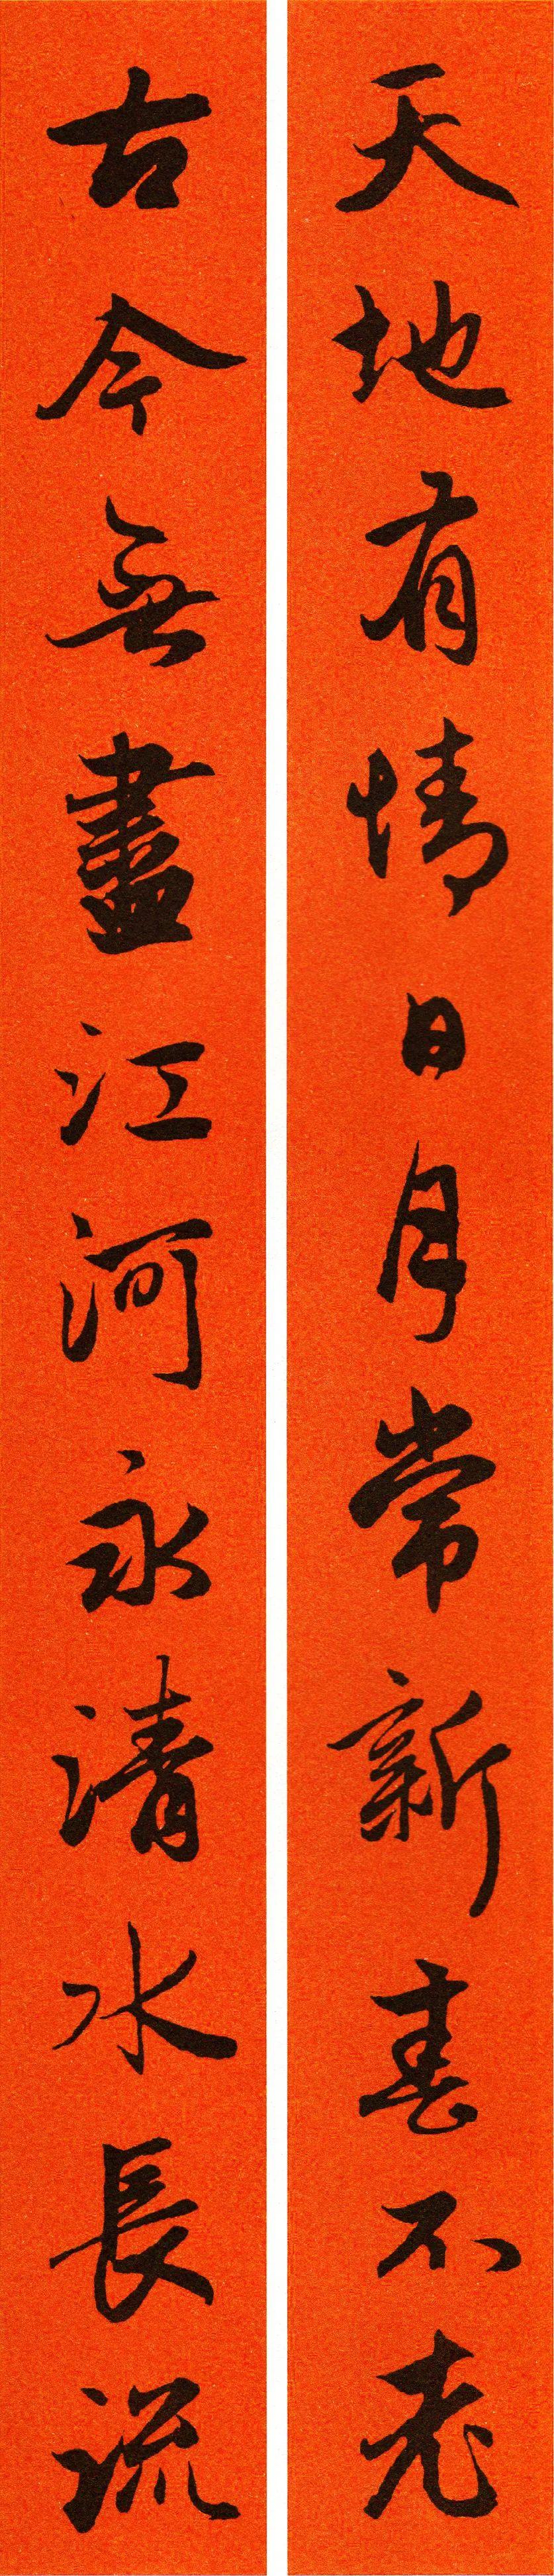 天地有情日月常新春不老
古今無盡江河永清水長流